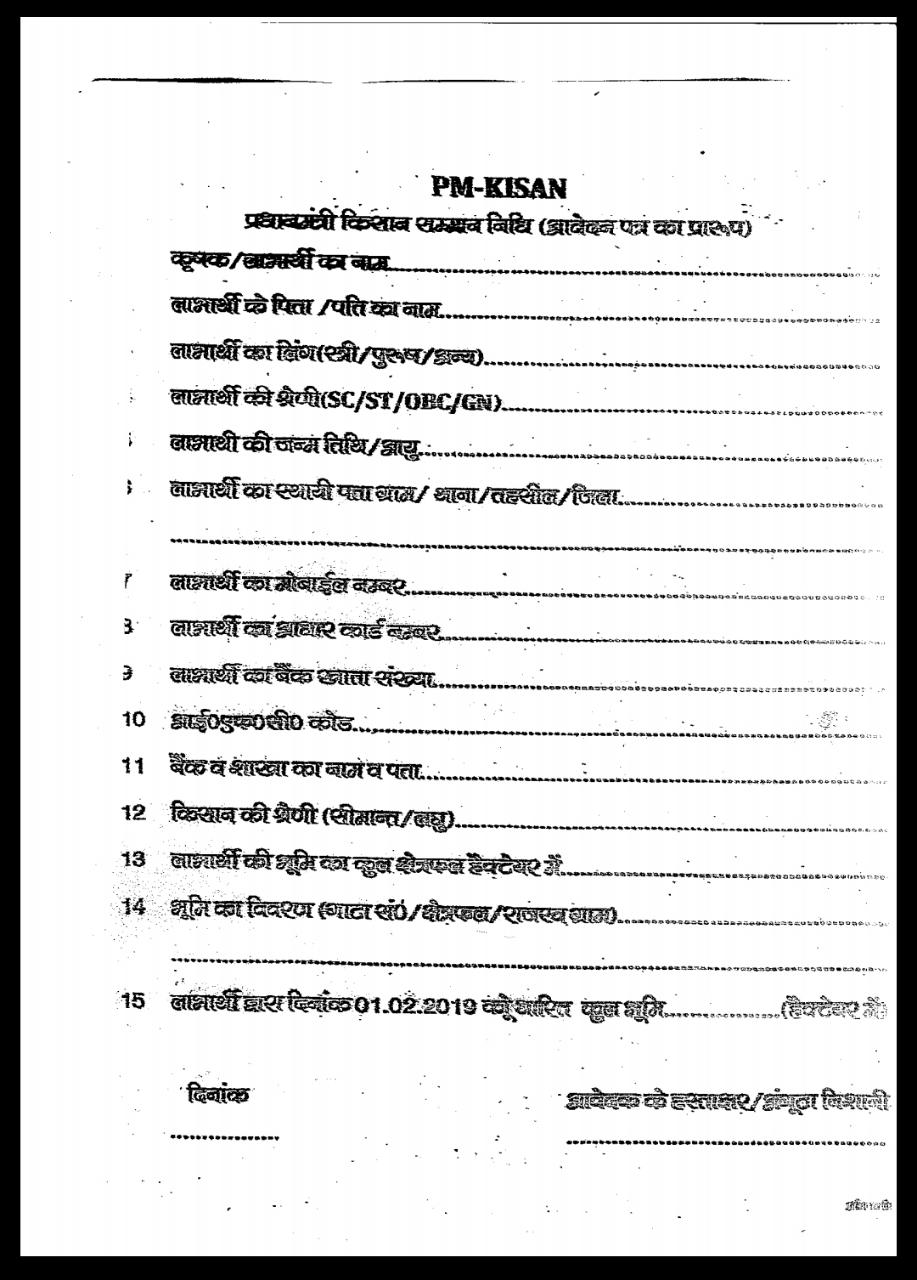 PM-KISAN
प्रधानमंत्री किसान सम्मान निधि (आवेदन पत्र का प्रारूप)
कृषक/लाभार्थी का नाम
लाभार्थी के पिता /पति का नाम
लाभार्थी का लिंग(स्त्री/पुरूष/अन्य)
लाभार्थी की श्रेणी(SC/ST/OBC/GN)
लाभार्थी की जन्म तिथि/आयु
लाभार्थी का स्थायी पता ग्राम/ थाना/तहसील/जिला
7 लाभार्थी का मोबाईल नम्बर
8 लाभार्थी का आधार कार्ड नम्बर
9 लाभार्थी का बैंक खाता संख्या
10 आई0एफ0सी0 कोड
11 बैंक व शाखा का नाम व पता
12 किसान की श्रैणी (सीमान्त/लघु)
13 लाभार्थी की भूमि का कुल क्षेत्रफल हैक्टेयर में
14 भूमि का विवरण (गाटा सं0/क्षेत्रफल/राजस्व ग्राम)
15 लाभार्थी द्वारा दिनांक 01.02.2019 को धारित कुल भूमि..................(हैक्टेयर में)
दिनांक
आवेदक के हस्ताक्षर/अंगूठा निशानी